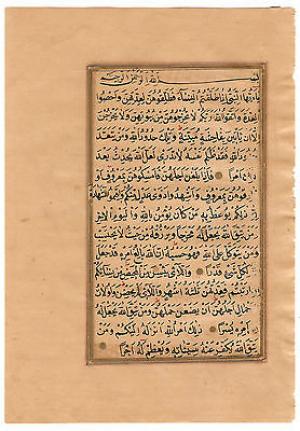 بسم الله الرحمن الرحيم
يا ايها النبي اذا طلقتم النساء فطلقوهن لعدتهن واحصوا
العدة واتقوا الله ربكم لا تخرجوهن من بيوتهن ولا يخرجن
الا ان ياتين بفاحشة مبينة وتلك حدود الله ومن يتعد
حدود الله فقد ظلم نفسه لا تدري لعل الله يحدث بعد
ذلك امرا فاذا بلغن اجلهن فامسكوهن بمعروف او
فارقوهن بمعروف واشهدوا ذوي عدل منكم واقيموا الشهادة
لله ذلكم يوعظ به من كان يؤمن بالله واليوم الاخر
ومن يتق الله يجعل له مخرجا ويرزقه من حيث لا يحتسب
ومن يتوكل على الله فهو حسبه ان الله بالغ امره قد جعل الله
لكل شيء قدرا واللائي يئسن من المحيض من نسائكم
ان ارتبتم فعدتهن ثلثة اشهر واللائي لم يحضن واولات
الاحمال اجلهن ان يضعن حملهن ومن يتق الله يجعل له
من امره يسرا ذلك امر الله انزله اليكم ومن
يتق الله يكفر عنه سيئاته ويعظم له اجرا